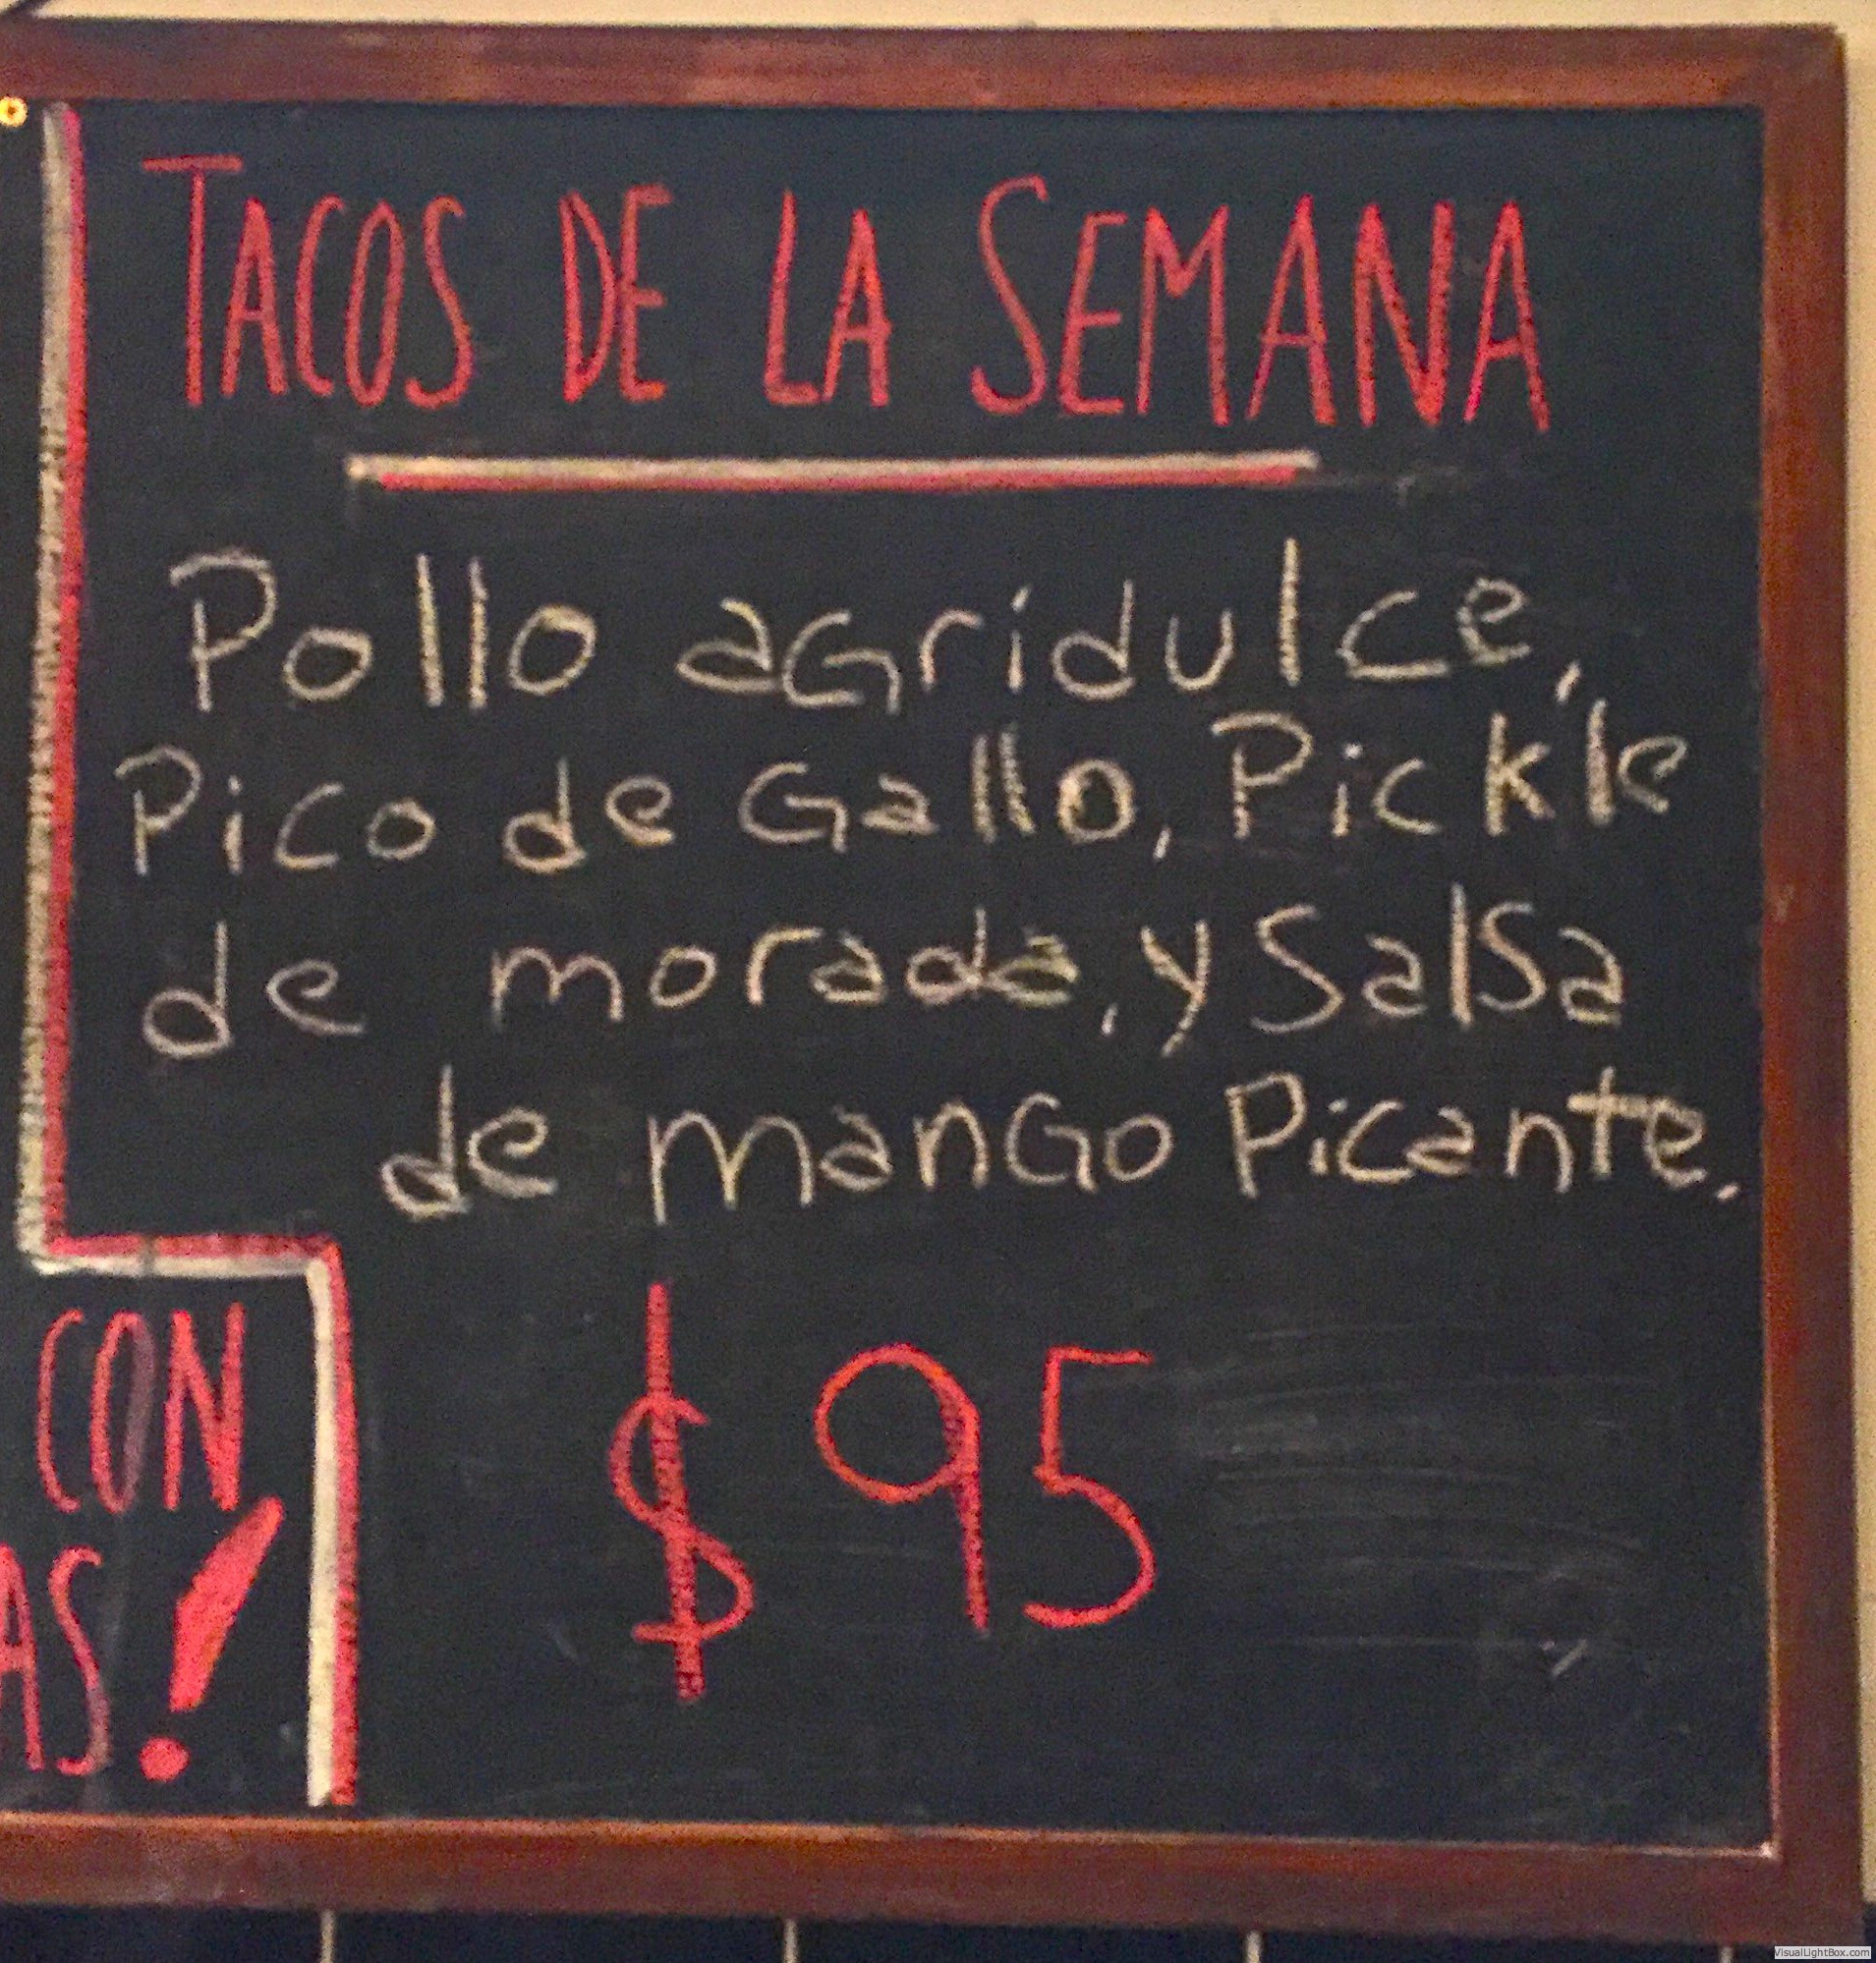 TACOS DE LA SEMANA
Pollo agridulce,
Pico de Gallo, Pickle
de morada, y Salsa
de mango Picante.
$ 95
CON
AS!
VisualLightBox.com